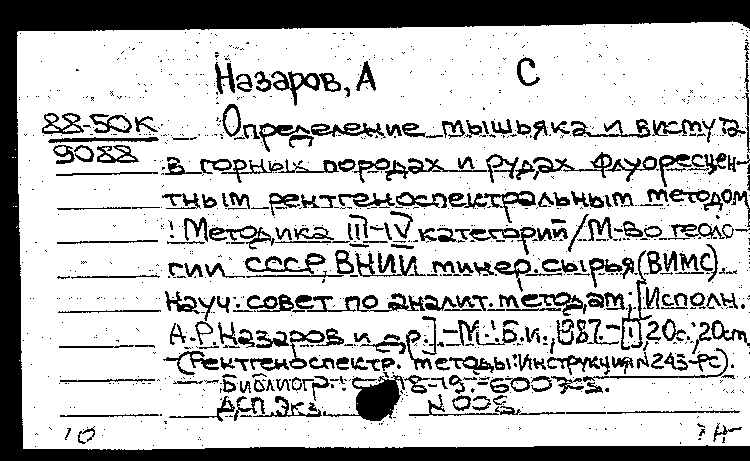 Назаров, А С
88-50К Определение мышьяка и висмута
9088 в горных породах и рудах флуоресцен-
тным рентгеноспектральным методом
: Методика III-IV категорий / М-во геоло-
гии СССР, ВНИИ минер. сырья (ВИМС).
Науч. совет по аналит. методам; [Исполн.
А.Р. Назаров и др.]. - М. : Б.и., 1987. - [1], 20 с.; 20 см
- (Рентгеноспектр. методы: Инструкция N 243-РС).
Библиогр.: с. 18-19. - 600 экз.
ДСП. Экз. N 008.
10